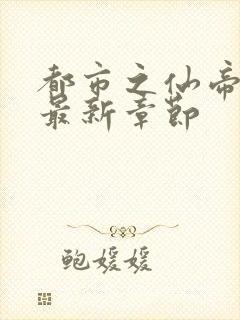 都市之仙帝
最新章节
鲍媛媛